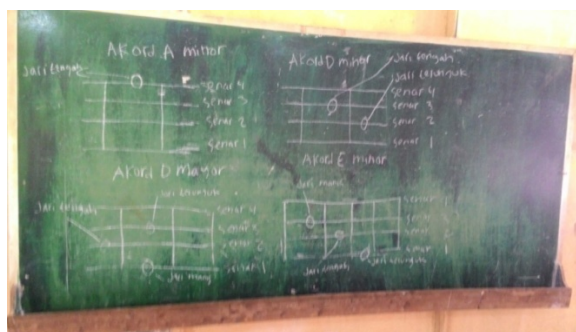 Akord A minor
Jari tengah
senar 4
senar 3
senar 2
senar 1
Akord D minor
Jari tengah
Jari telunjuk
senar 4
senar 3
senar 2
senar 1
Akord D Mayor
Jari telunjuk
Jari tengah
senar 4
senar 2
senar 1
Jari manis
Akord E minor
Jari manis
senar
senar
senar
Jari tengah
Jari telunjuk